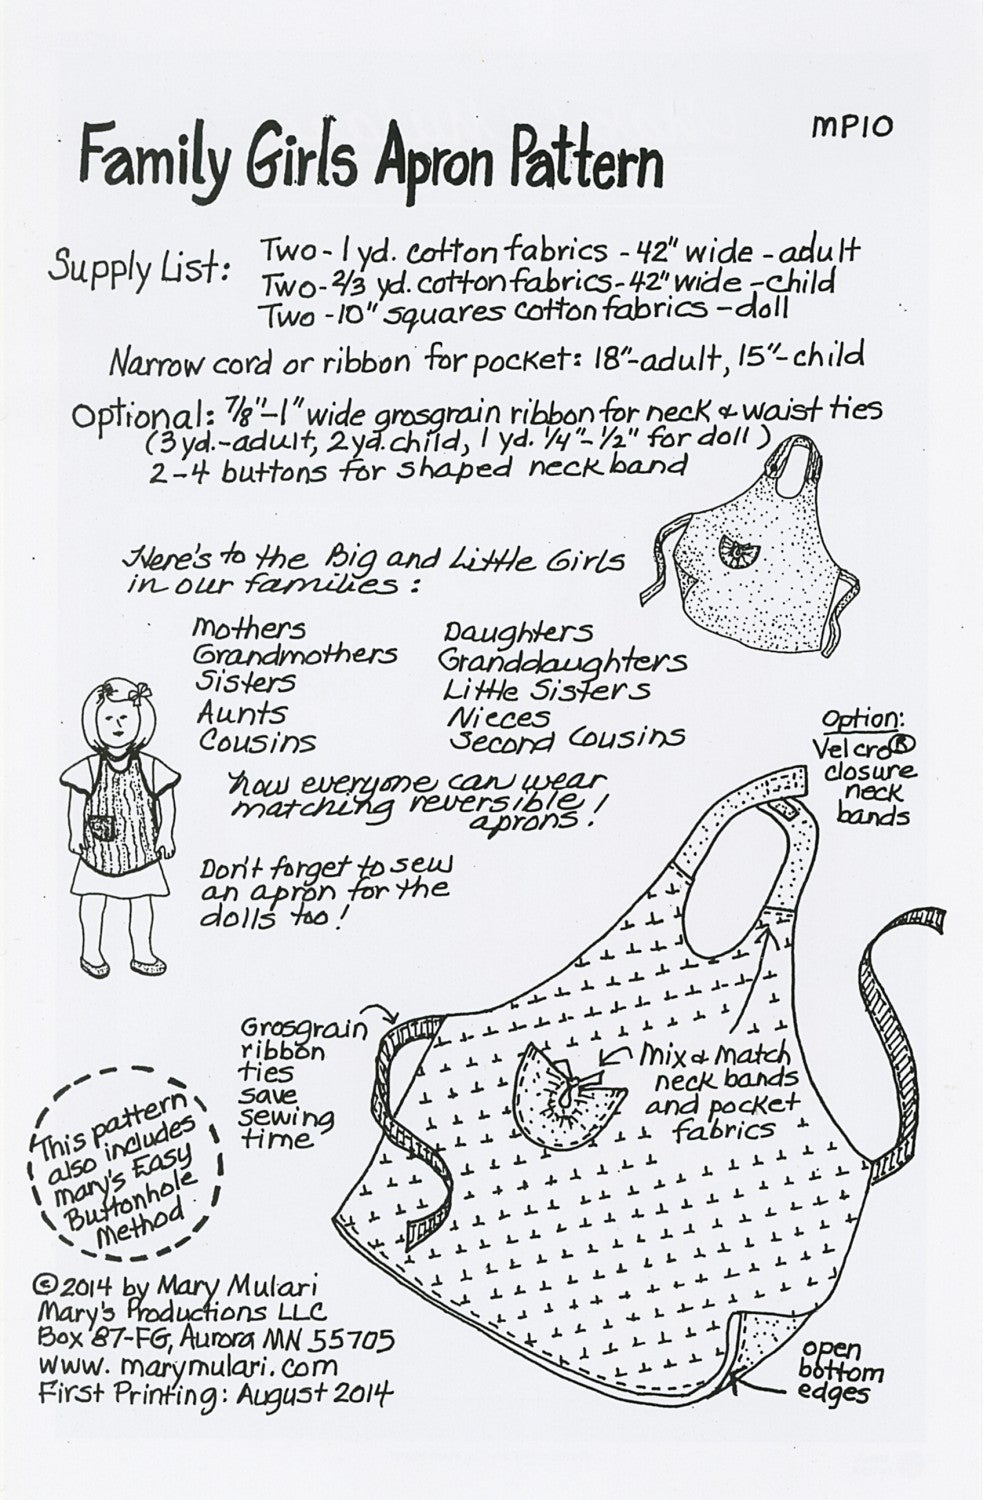 MP10
Family Girls Apron Pattern
Supply List:
Two - 1 yd. cotton fabrics - 42" wide - adult
Two - 2/3 yd. cotton fabrics - 42" wide - child
Two - 10" squares cotton fabrics - doll
Narrow cord or ribbon for pocket: 18"-adult, 15"-child
Optional: 7/8"-1" wide grosgrain ribbon for neck & waist ties
(3 yd.-adult, 2 yd. child, 1 yd. 1/4"-1/2" for doll)
2-4 buttons for shaped neck band
Here's to the Big and Little Girls
in our families:
Mothers
Grandmothers
Sisters
Aunts
Cousins
Daughters
Granddaughters
Little Sisters
Nieces
Second Cousins
Now everyone can wear
matching reversible
aprons!
Don't forget to sew
an apron for the
dolls too!
Option:
Velcro®
closure
neck
bands
Grosgrain
ribbon
ties
save
sewing
time
Mix & Match
neck bands
and pocket
fabrics
This pattern
also includes
Mary's Easy
Buttonhole
Method
© 2014 by Mary Mulari
Mary's Productions LLC
Box 87-FG, Aurora MN 55705
www.marymulari.com
First Printing: August 2014
open
bottom
edges